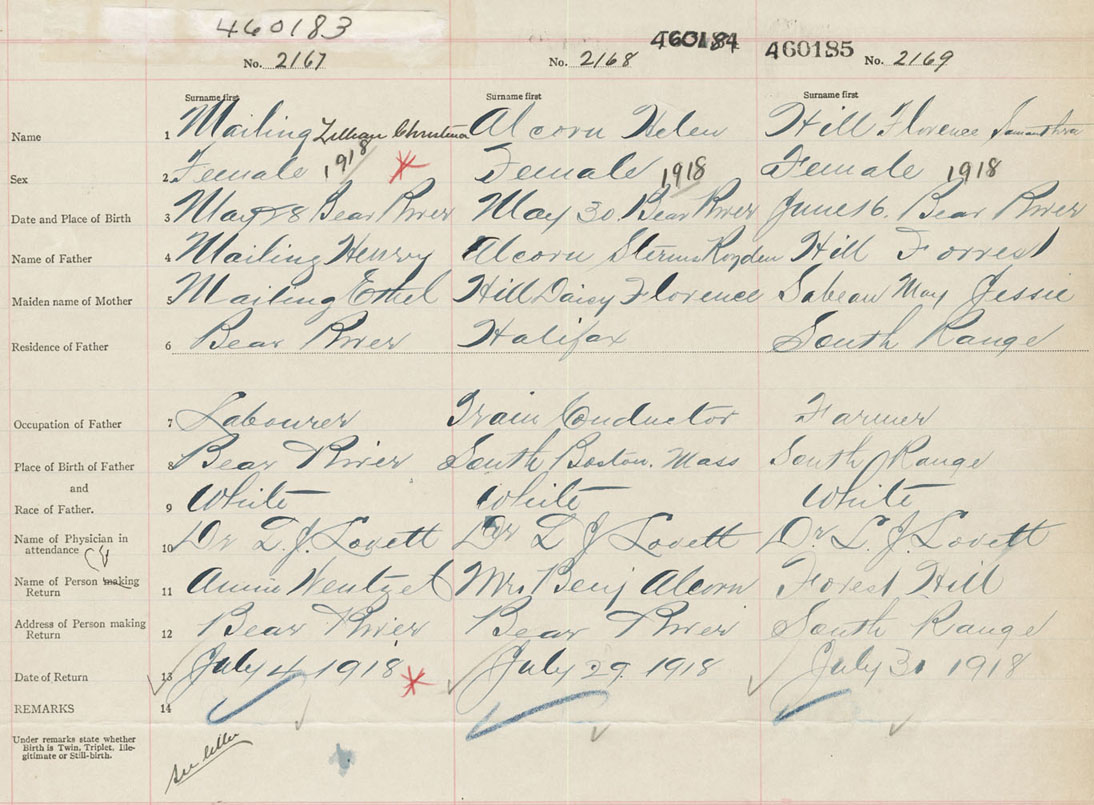 460183
460184
460185
No. 2167
No. 2168
No. 2169
Surname first
Surname first
Surname first
Name 1 Mailing Lillian Christena Alcorn Helen Hill Florence Samanthra
Sex 2 Female 1918 Female 1918 Female 1918
Date and Place of Birth 3 May 28 Bear River May 30 Bear River June 16. Bear River
Name of Father 4 Mailing Henry Alcorn Royden Hill Forrest
Maiden name of Mother 5 Mailing Ethel Hill Daisy Florence Sabean May Jessie
Residence of Father 6 Bear River Halifax South Range
Occupation of Father 7 Labourer Train Conductor Farmer
Place of Birth of Father 8 Bear River South Boston. Mass South Range
and
Race of Father. 9 White White White
Name of Physician in
attendance 10 Dr L. J. Lovett Dr L J Lovett Dr. L. J. Lovett
Name of Person making
Return 11 Annie Wentzel Mrs. Benj Alcorn Forest Hill
Address of Person making
Return 12 Bear River Bear River South Range
Date of Return 13 July 4 1918 July 29. 1918 July 31 1918
REMARKS 14
Under remarks state whether
Birth is Twin, Triplet, Ille-
gitimate or Still-birth.
see letter